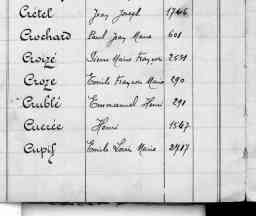 Crétel Jean Joseph 1746
Crochard Paul Jean Marie 601
Croizé Pierre Marie François 2531
Croze Emile François Marie 290
Crublé Emmanuel Henri 291
Cuerée Henri 1567
Cupif Emile Louis Marie 2417